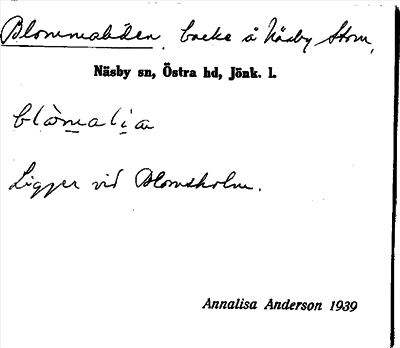 Blommabäen, backe å Näsby Stom,
Näsby sn, Östra hd, Jönk. l.
Ligger vid Blomsholm.
Annalisa Anderson 1939